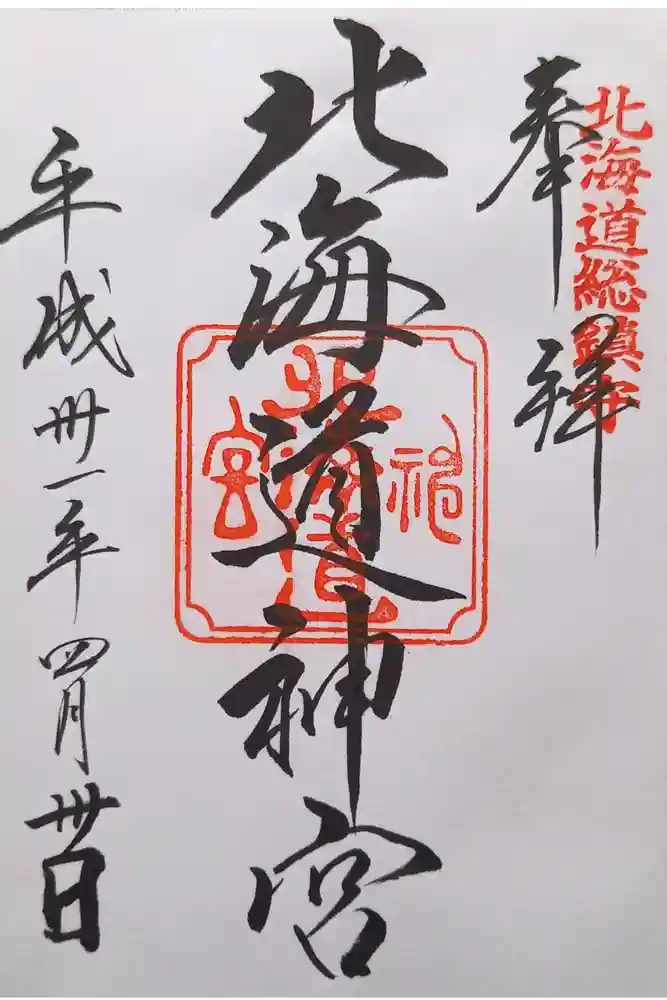 北海道総鎮守
奉拝
北海道神宮
北海道神宮
平成丗一年四月丗日